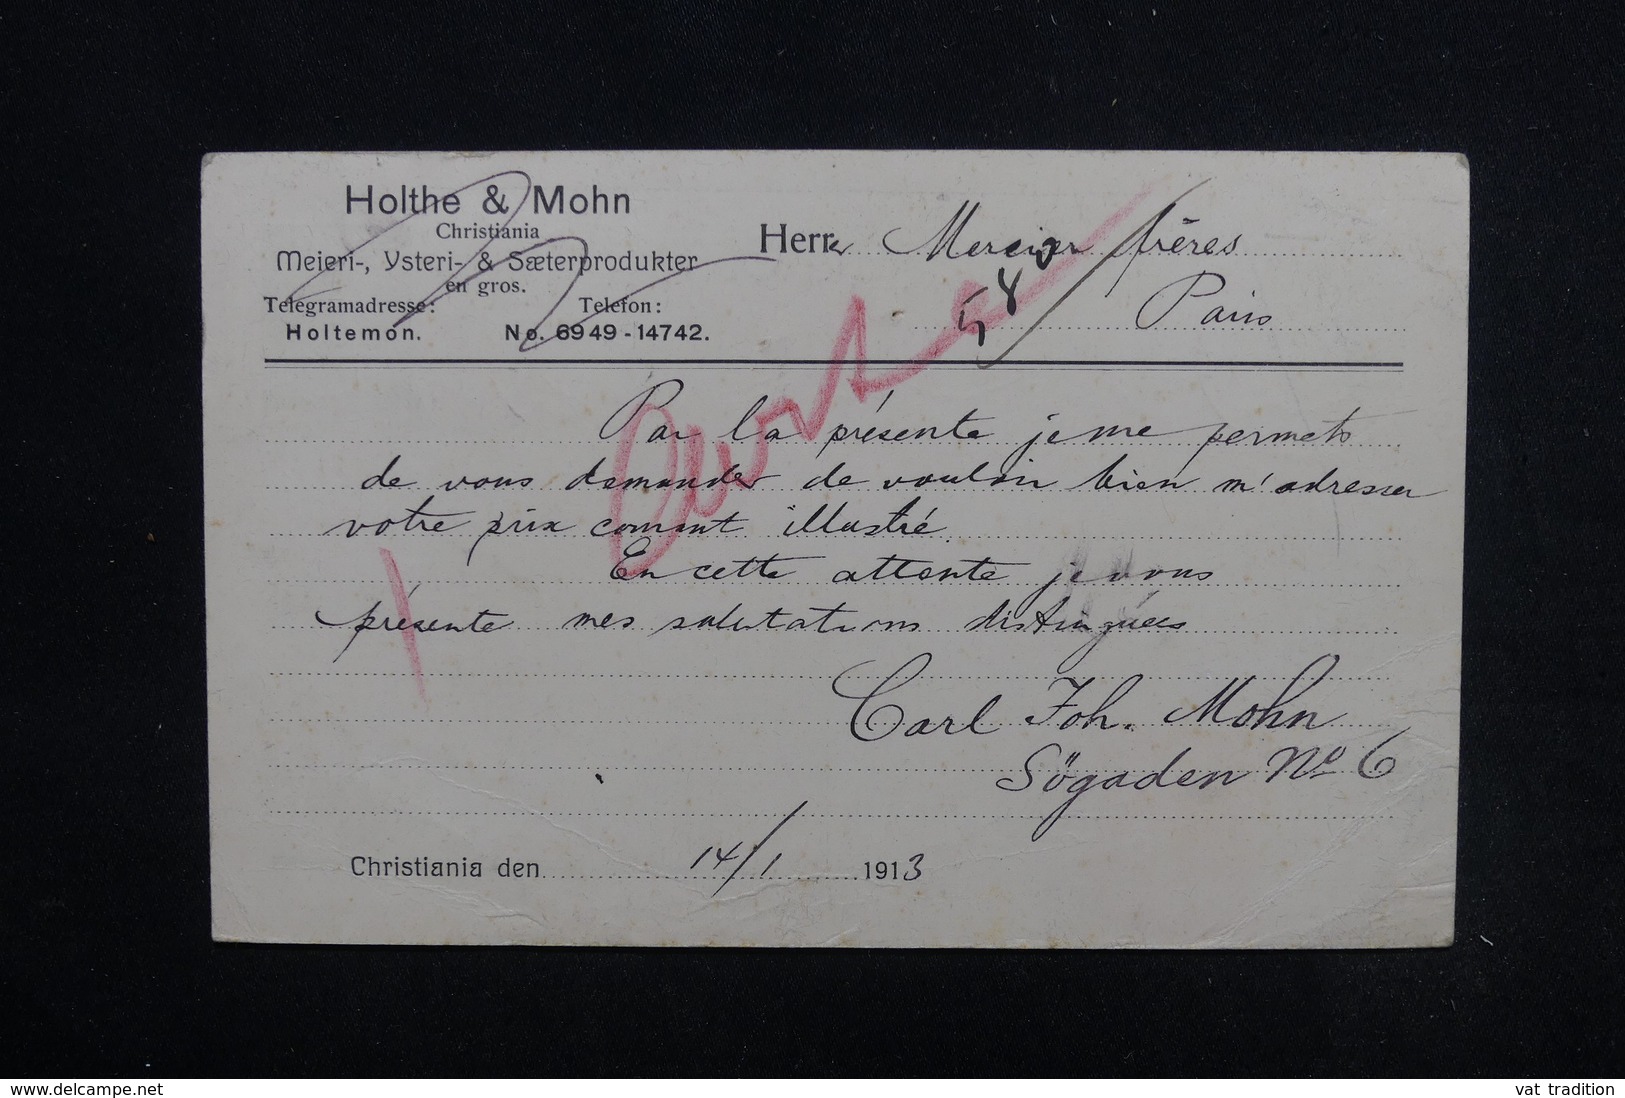 Holthe & Mohn
Christiania
Meieri-, Ysteri- & Sæterprodukter
en gros.
Telegramadresse: Telefon:
Holtemon. No. 6949-14742.
Herrer Mercier frères
58
Paris
Par la présente je me permets
de vous demander de vouloir bien m'adresser
votre prix courant illustré.
En cette attente je vous
présente mes salutations distinguées
Carl Joh. Mohn
Sögaden No 6
Christiania den 14/1 1913
delcampe.net
vat tradition